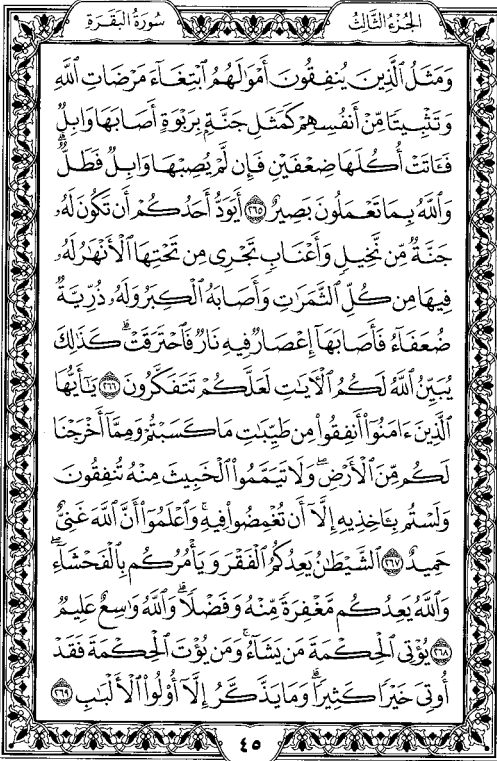 الجُزءُ الثَّالِثُ
سُورَةُ البَقَرَةِ
وَمَثَلُ ٱلَّذِينَ يُنفِقُونَ أَمۡوَٰلَهُمُ ٱبۡتِغَآءَ مَرۡضَاتِ ٱللَّهِ
وَتَثۡبِيتٗا مِّنۡ أَنفُسِهِمۡ كَمَثَلِ جَنَّةِۭ بِرَبۡوَةٍ أَصَابَهَا وَابِلٞ
فَـَٔاتَتۡ أُكُلَهَا ضِعۡفَيۡنِ فَإِن لَّمۡ يُصِبۡهَا وَابِلٞ فَطَلّٞۗ
وَٱللَّهُ بِمَا تَعۡمَلُونَ بَصِيرٌ ٢٦٥ أَيَوَدُّ أَحَدُكُمۡ أَن تَكُونَ لَهُۥ
جَنَّةٞ مِّن نَّخِيلٖ وَأَعۡنَابٖ تَجۡرِي مِن تَحۡتِهَا ٱلۡأَنۡهَٰرُ لَهُۥ
فِيهَا مِن كُلِّ ٱلثَّمَرَٰتِ وَأَصَابَهُ ٱلۡكِبَرُ وَلَهُۥ ذُرِّيَّةٞ
ضُعَفَآءُ فَأَصَابَهَآ إِعۡصَارٞ فِيهِ نَارٞ فَٱحۡتَرَقَتۡۗ كَذَٰلِكَ
يُبَيِّنُ ٱللَّهُ لَكُمُ ٱلۡأٓيَٰتِ لَعَلَّكُمۡ تَتَفَكَّرُونَ ٢٦٦ يَٰٓأَيُّهَا
ٱلَّذِينَ ءَامَنُوٓاْ أَنفِقُواْ مِن طَيِّبَٰتِ مَا كَسَبۡتُمۡ وَمِمَّآ أَخۡرَجۡنَا
لَكُم مِّنَ ٱلۡأَرۡضِۖ وَلَا تَيَمَّمُواْ ٱلۡخَبِيثَ مِنۡهُ تُنفِقُونَ
وَلَسۡتُم بِـَٔاخِذِيهِ إِلَّآ أَن تُغۡمِضُواْ فِيهِۚ وَٱعۡلَمُوٓاْ أَنَّ ٱللَّهَ غَنِيٌّ
حَمِيدٌ ٢٦٧ ٱلشَّيۡطَٰنُ يَعِدُكُمُ ٱلۡفَقۡرَ وَيَأۡمُرُكُم بِٱلۡفَحۡشَآءِۖ
وَٱللَّهُ يَعِدُكُم مَّغۡفِرَةٗ مِّنۡهُ وَفَضۡلٗاۗ وَٱللَّهُ وَٰسِعٌ عَلِيمٞ
٢٦٨ يُؤۡتِي ٱلۡحِكۡمَةَ مَن يَشَآءُۚ وَمَن يُؤۡتَ ٱلۡحِكۡمَةَ فَقَدۡ
أُوتِيَ خَيۡرٗا كَثِيرٗاۗ وَمَا يَذَّكَّرُ إِلَّآ أُوْلُواْ ٱلۡأَلۡبَٰبِ ٢٦٩
٤٥